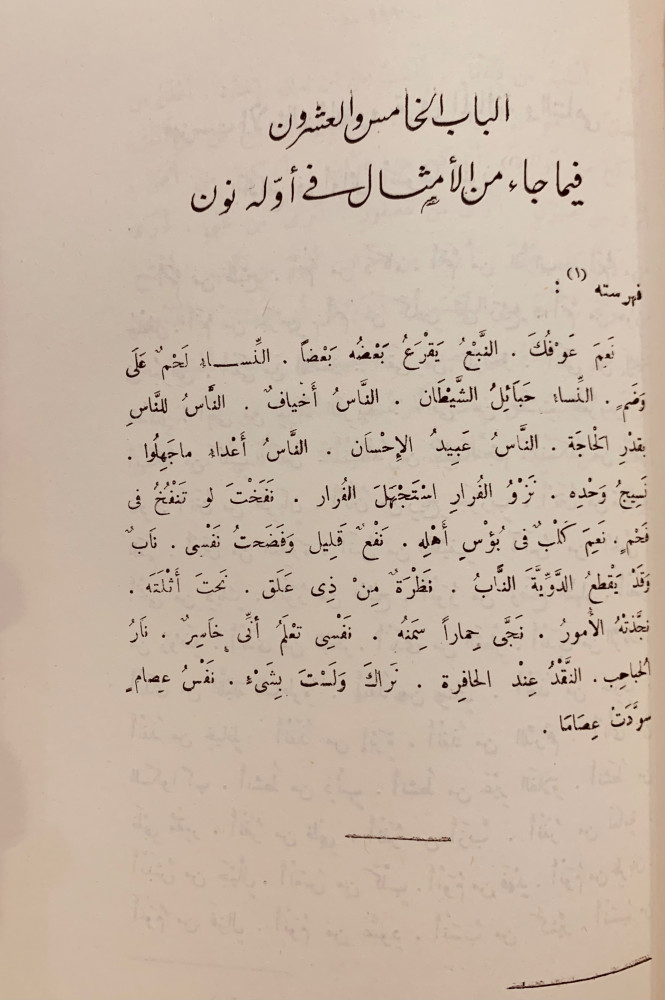 الباب الخامس والعشرون
فيما جاء من الأمثال في أوّله نون
فهرسته (١) :
نَعِمَ عَوْفُكَ . النَّبْعُ يَقْرَعُ بَعْضُه بَعْضاً . النِّساءُ لَحْمٌ عَلَى
وَضَمٍ . النِّساءُ حَبَائِلُ الشَّيْطَان . النَّاسُ أَخْيافٌ . النَّاسُ للنَّاسِ
بقدْرِ الحْاجَة . النَّاسُ عَبِيدُ الإِحْسَان . النَّاسُ أَعْداءُ ماجَهِلُوا .
نَسِيجُ وَحْدِه . نَزْوُ الفُرارِ اسْتَجْهَلَ الفُرار . نَفَخْتَ لو تَنْفُخُ فى
فَحْمٍ . نَعِمَ كَلْبٌ فى بُؤْسِ أَهْلِه . نَفْعٌ قَلِيل وَفَضَحتُ نَفْسى . نَابٌ
وَقَدْ يَقْطعُ الدَّوِّيَّةَ النَّابُ . نَظْرَةٌ مِنْ ذِى عَلَق . نَحتَ أَثْلَتَه .
نجَّذتْهُ الأُمورُ . نَجَّى حِماراً سِمَنُه . نَفْسِى تعْلَمُ أنِّى خَاسِرٌ . نَارُ
الحُباحِب . النَّقْدُ عِنْد الحافِرة . نَراكَ وَلَسْتَ بِشَىْءٍ . نَفْسُ عِصامٍ
سوَّدَتْ عِصَامَا .